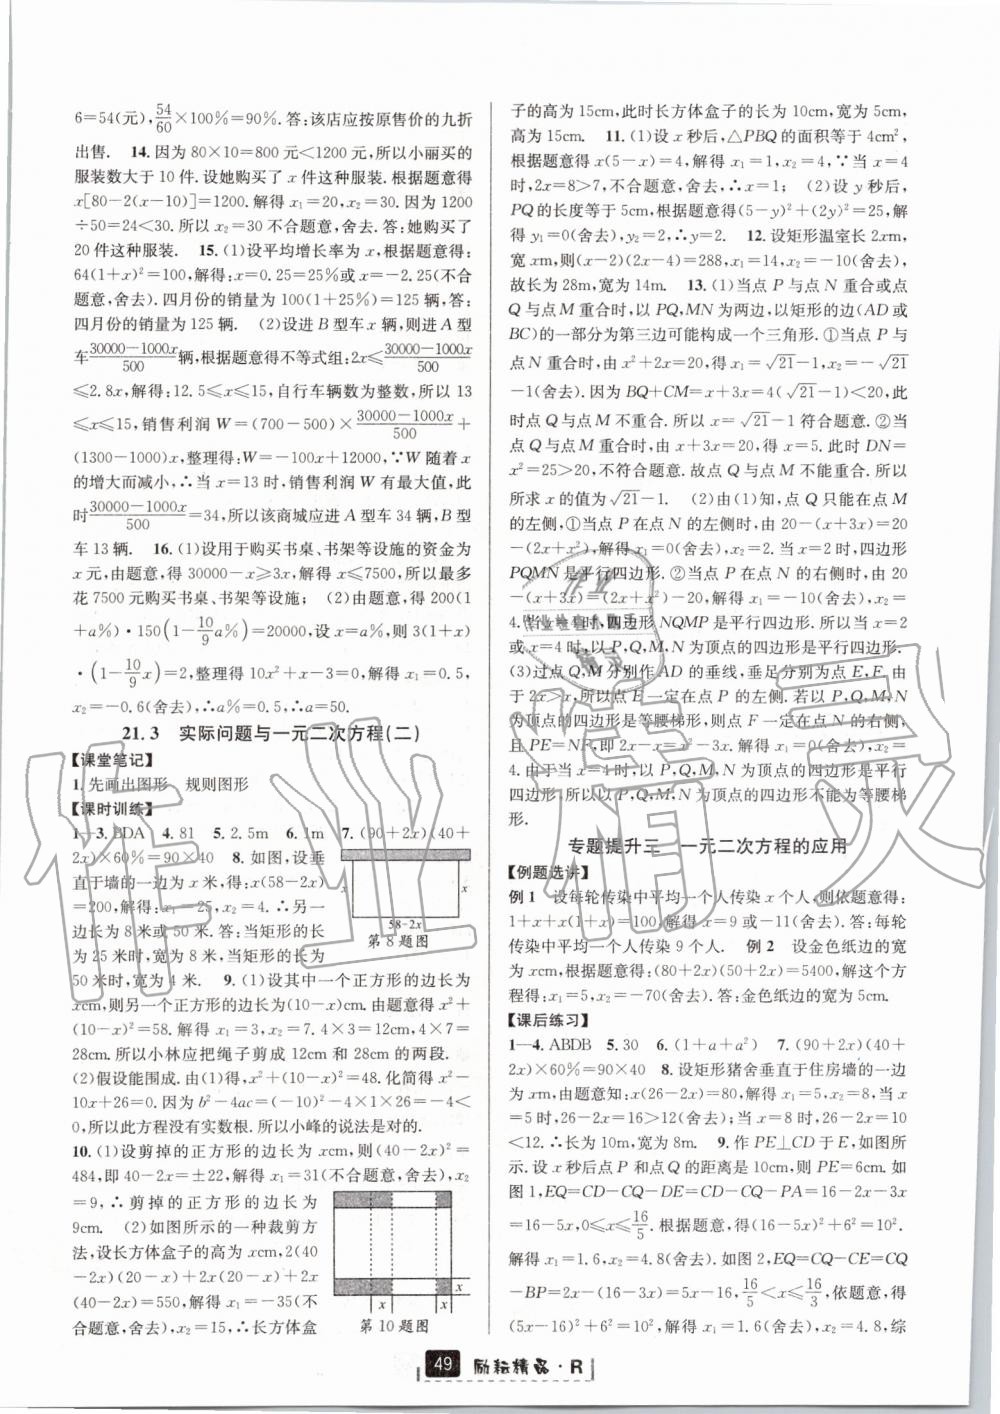 6=54(元),54/60×100%=90%.答:该店应按原售价的九折
出售. 14.因为80×10=800元<1200元,所以小丽买的
服装数大于10件.设她购买了x件这种服装.根据题意得
x[80-2(x-10)]=1200.解得x₁=20,x₂=30.因为1200
÷50=24<30.所以x₂=30不合题意,舍去.答:她购买了
20件这种服装. 15.(1)设平均增长率为x,根据题意得:
64(1+x)²=100,解得:x=0.25=25%或x=-2.25(不合
题意,舍去).四月份的销量为100(1+25%)=125辆,答:
四月份的销量为125辆. (2)设进B型车x辆,则进A型
车(30000-1000x)/500辆,根据题意得不等式组:2x≤(30000-1000x)/500
≤2.8x,解得:12.5≤x≤15,自行车辆数为整数,所以13
≤x≤15,销售利润W=(700-500)×(30000-1000x)/500+
(1300-1000)x,整理得:W=-100x+12000,∵W随着x
的增大而减小,∴当x=13时,销售利润W有最大值,此
时(30000-1000x)/500=34,所以该商城应进A型车34辆,B型
车13辆. 16.(1)设用于购买书桌、书架等设施的资金为
x元,由题意,得30000-x≥3x,解得x≤7500,所以最多
花7500元购买书桌、书架等设施; (2)由题意,得200(1
+a%)·150(1-10/9a%)=20000,设x=a%,则3(1+x)
·(1-10/9x)=2,整理得10x²+x-3=0,解得x₁=0.5,
x₂=-0.6(舍去),∴a%=0.5,∴a=50.
21.3 实际问题与一元二次方程(二)
【课堂笔记】
1.先画出图形 规则图形
【课时训练】
1—3.BDA 4.81 5.2.5m 6.1m 7.(90+2x)(40+
2x)×60%=90×40 8.如图,设垂
直于墙的一边为x米,得:x(58-2x)
=200.解得:x₁=25,x₂=4.∴另一
边为8米或50米.答:当矩形的长
为25米时,宽为8米,当矩形的长为
50米时,宽为4米. 9.(1)设其中一个正方形的边长为
xcm,则另一个正方形的边长为(10-x)cm.由题意得x²+
(10-x)²=58.解得x₁=3,x₂=7.4×3=12cm,4×7=
28cm.所以小林应把绳子剪成12cm和28cm的两段.
(2)假设能围成.由(1)得,x²+(10-x)²=48.化简得x²-
10x+26=0.因为b²-4ac=(-10)²-4×1×26=-4<
0,所以此方程没有实数根.所以小峰的说法是对的.
10.(1)设剪掉的正方形的边长为xcm,则(40-2x)²=
484,即40-2x=±22,解得x₁=31(不合题意,舍去),x₂
=9,∴剪掉的正方形的边长为
9cm. (2)如图所示的一种裁剪方
法,设长方体盒子的高为xcm,2(40
-2x)(20-x)+2x(20-x)+2x
(40-2x)=550,解得x₁=-35(不
合题意,舍去),x₂=15,∴长方体盒
x
x
58-2x
第8题图
x
x
x
第10题图
子的高为15cm,此时长方体盒子的长为10cm,宽为5cm,
高为15cm. 11.(1)设x秒后,△PBQ的面积等于4cm²,
根据题意得x(5-x)=4,解得x₁=1,x₂=4.∵当x=4
时,2x=8>7,不合题意,舍去,∴x=1; (2)设y秒后,
PQ的长度等于5cm,根据题意得(5-y)²+(2y)²=25,解
得y₁=0(舍去),y₂=2,∴y=2. 12.设矩形温室长2xm,
宽xm,则(x-2)(2x-4)=288,x₁=14,x₂=-10(舍去),
故长为28m,宽为14m. 13.(1)当点P与点N重合或点
Q与点M重合时,以PQ,MN为两边,以矩形的边(AD或
BC)的一部分为第三边可能构成一个三角形.①当点P与
点N重合时,由x²+2x=20,得x₁=√21-1,x₂=-√21
-1(舍去).因为BQ+CM=x+3x=4(√21-1)<20,此
时点Q与点M不重合.所以x=√21-1符合题意.②当
点Q与点M重合时,由x+3x=20,得x=5.此时DN=
x²=25>20,不符合题意.故点Q与点M不能重合.所以
所求x的值为√21-1. (2)由(1)知,点Q只能在点M
的左侧,①当点P在点N的左侧时,由20-(x+3x)=20
-(2x+x²),解得x₁=0(舍去),x₂=2.当x=2时,四边形
PQMN是平行四边形.②当点P在点N的右侧时,由20
-(x+3x)=(2x+x²)-20,解得x₁=-10(舍去),x₂=
4.当x=4时,四边形NQMP是平行四边形.所以当x=2
或x=4时,以P,Q,M,N为顶点的四边形是平行四边形.
(3)过点Q,M分别作AD的垂线,垂足分别为点E,F.由
于2x>x,所以点E一定在点P的左侧.若以P,Q,M,N
为顶点的四边形是等腰梯形,则点F一定在点N的右侧,
且PE=NF,即2x-x=x²-3x.解得x₁=0(舍去),x₂=
4.由于当x=4时,以P,Q,M,N为顶点的四边形是平行
四边形,所以以P,Q,M,N为顶点的四边形不能为等腰梯
形.
专题提升三 一元二次方程的应用
【例题选讲】
例1 设每轮传染中平均一个人传染x个人,则依题意得:
1+x+x(1+x)=100,解得x=9或-11(舍去).答:每轮
传染中平均一个人传染9个人. 例2 设金色纸边的宽
为xcm,根据题意,得:(80+2x)(50+2x)=5400,解这个方
程得:x₁=5,x₂=-70(舍去).答:金色纸边的宽为5cm.
【课后练习】
1—4.ABDB 5.30 6.(1+a+a²) 7.(90+2x)(40+
2x)×60%=90×40 8.设矩形猪舍垂直于住房墙的一边
为xm可以得出x(26-2x)=80,解得x₁=5,x₂=8,当x
=5时,26-2x=16>12(舍去);当x=8时,26-2x=10
<12.∴长为10m,宽为8m. 9.作PE⊥CD于E,如图所
示.设x秒后点P和点Q的距离是10cm,则PE=6cm.如
图1,EQ=CD-CQ-DE=CD-CQ-PA=16-2x-3x
=16-5x,0≤x≤16/5.根据题意,得(16-5x)²+6²=10².
解得x₁=1.6,x₂=4.8(舍去).如图2,EQ=CQ-CE=CQ
-BP=2x-(16-3x)=5x-16,16/5<x≤16/3,依题意,得
(5x-16)²+6²=10²,解得x₁=1.6(舍去),x₂=4.8,综
49 励耘精品·R
作业精灵